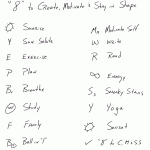 "8" to Create, Motivate & Stay in Shape
Sunrise
Y Sun Salute
E Exercise
P Plan
B Breathe
Study
F Family
B Ball n' T
M Motivate Self
W Write
R Read
Energy
S Sneaky Stairs
Y Yoga
Sunset